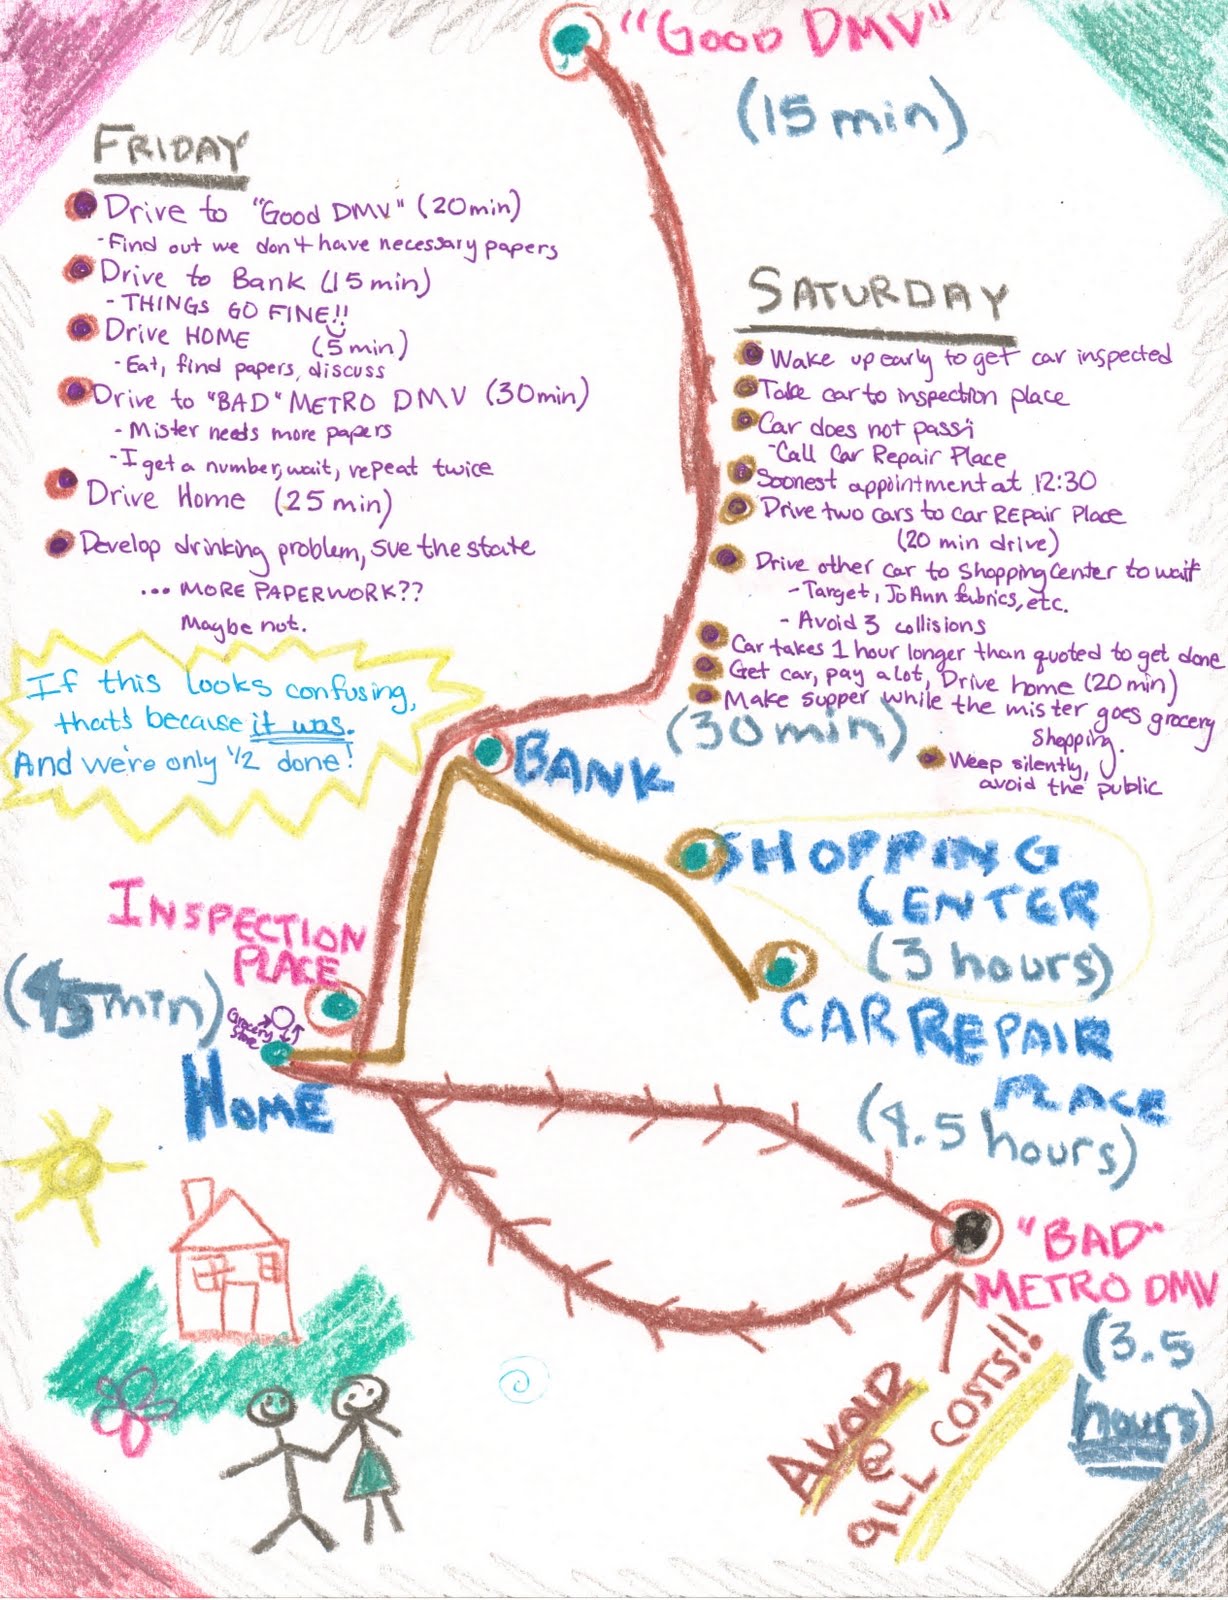 "GOOD DMV"
(15 min)
FRIDAY
Drive to "Good DMV" (20 min)
-Find out we don't have necessary papers
Drive to Bank (15 min)
- THINGS GO FINE!!
Drive HOME (5 min)
-Eat, find papers, discuss
Drive to "BAD" METRO DMV (30 min)
- Mister needs more papers
-I get a number, wait, repeat twice
Drive Home (25 min)
Develop drinking problem, sue the state
... MORE PAPERWORK??
Maybe not.
SATURDAY
Wake up early to get car inspected
Take car to inspection place
Car does not pass
-Call Car Repair Place
Soonest appointment at 12:30
Drive two cars to Car REpair Place
(20 min drive)
Drive other car to Shopping Center to wait
-Target, JoAnn fabrics, etc.
- Avoid 3 collisions
Car takes 1 hour longer than quoted to get done
Get car, pay a lot, Drive home (20 min)
Make supper while the mister goes grocery
shopping.
Weep silently,
avoid the public
If this looks confusing,
that's because it was.
And we're only 1/2 done!
(30 min)
BANK
SHOPPING
CENTER
(3 hours)
INSPECTION
PLACE
(45 min)
Grocery
Store
HOME
CAR REPAIR
PLACE
(4.5 hours)
"BAD"
METRO DMV
(3.5
hours)
AVOID
@
ALL COSTS!!